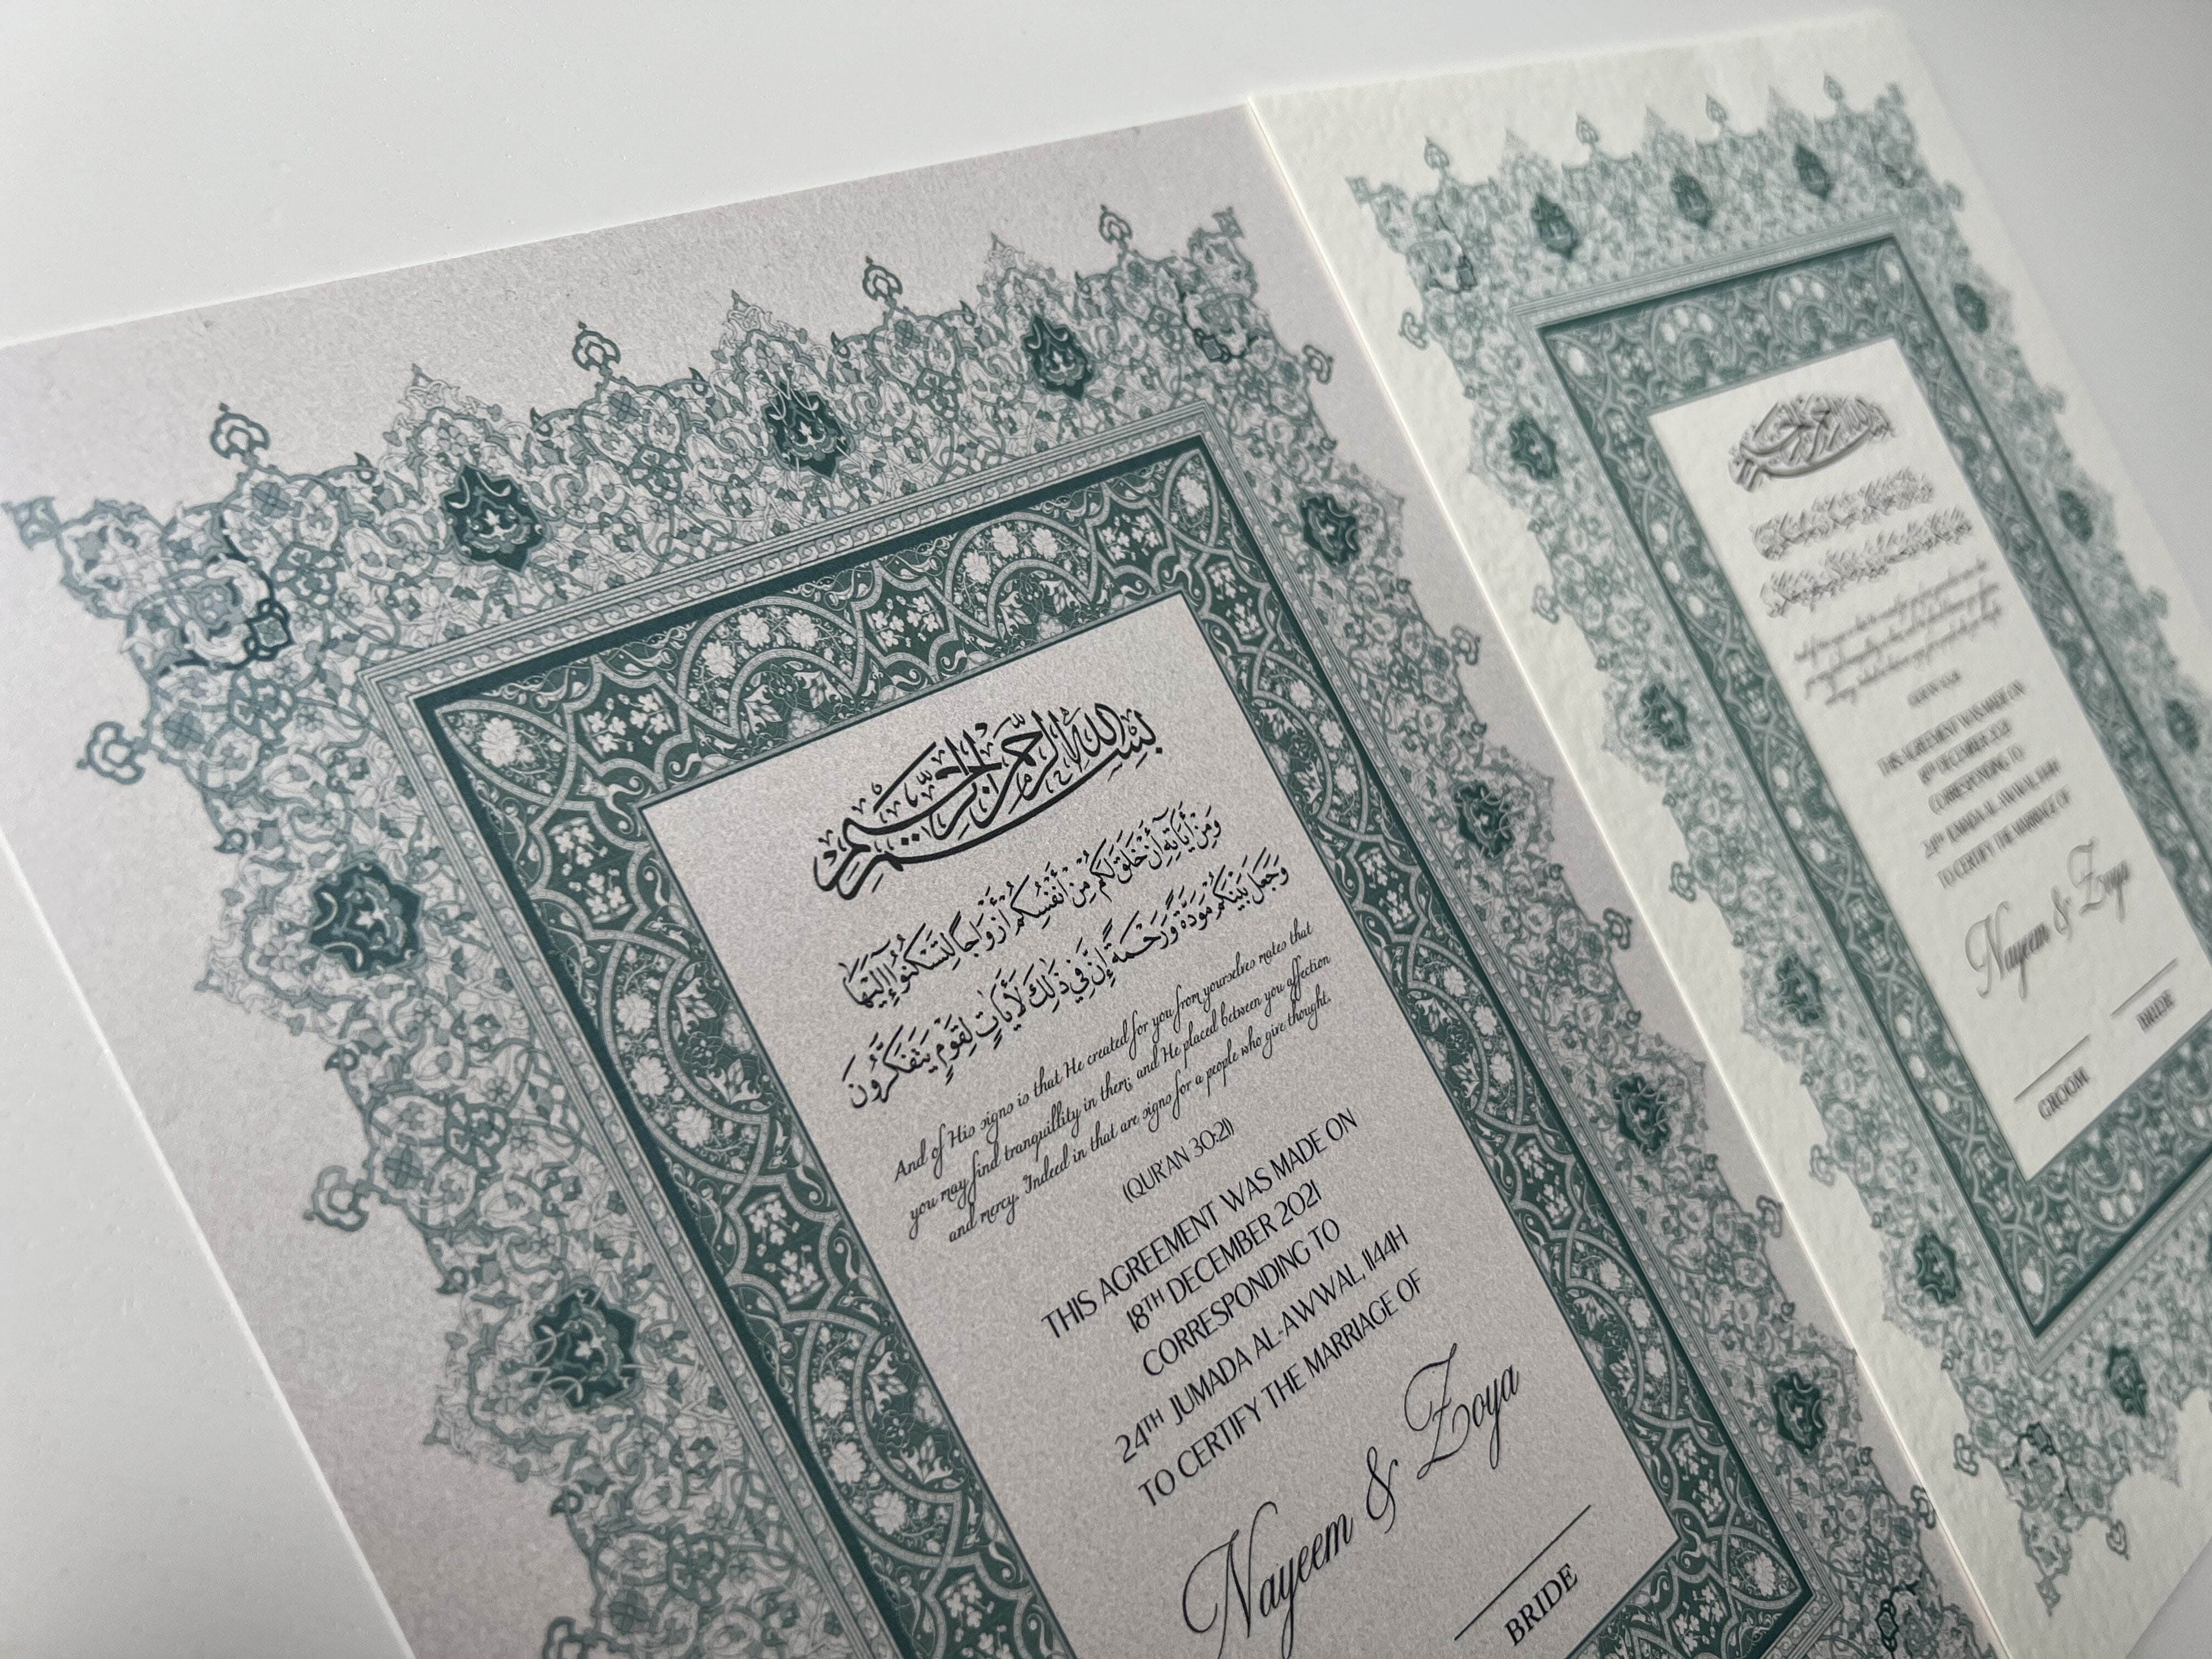 بسم الله الرحمن الرحيم
وَمِنْ أَيَاتِهِ أَنْ خَلَقَ لَكُم مِنْ أَنْفُسِكُمْ أَزْوَاجًا لِتَسْكُنُوا إِلَيْهَا
وَجَعَلَ بَيْنَكُم مَوَدَّةً وَرَحْمَةً إِنَّ فِي ذَلِكَ لَأَيَاتٍ لِقَوْمٍ يَتَفَكَّرُونَ
And of His signs is that He created for you from yourselves mates that
you may find tranquillity in them; and He placed between you affection
and mercy. Indeed in that are signs for a people who give thought.
(QUR'AN 30:21)
THIS AGREEMENT WAS MADE ON
18TH DECEMBER 2021
CORRESPONDING TO
24TH JUMADA AL-AWWAL 1144H
TO CERTIFY THE MARRIAGE OF
Nayeem & Zoya
BRIDE
THIS AGREEMENT WAS MADE ON
18TH DECEMBER 2021
CORRESPONDING TO
24TH JUMADA AL-AWWAL 1144H
TO CERTIFY THE MARRIAGE OF
Nayeem & Zoya
GROOM
BRIDE